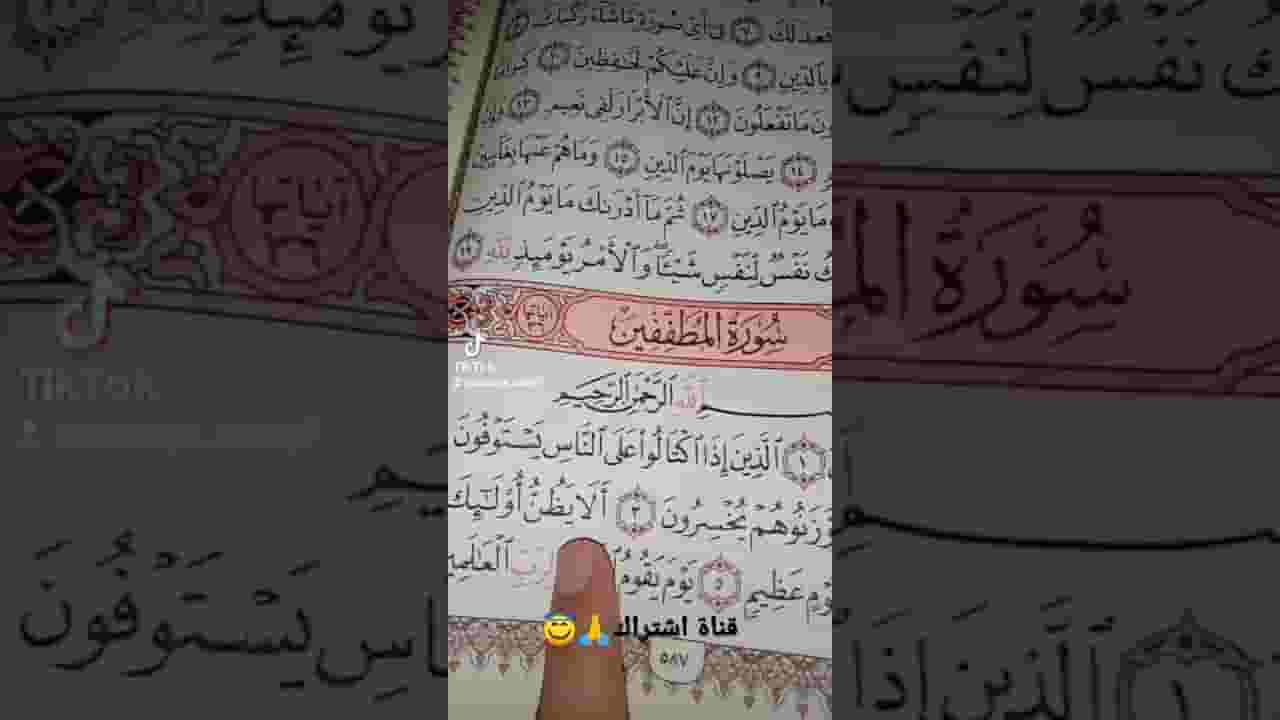 فعدلك ٧ فِىٓ أَىِّ صُورَةٍ مَّا شَآءَ رَكَّبَكَ
بِٱلدِّينِ ٩ وَإِنَّ عَلَيْكُمْ لَحَٰفِظِينَ ١٠
مَا تَفْعَلُونَ ١٢ إِنَّ ٱلْأَبْرَارَ لَفِى نَعِيمٍ ١٣
١٤ يَصْلَوْنَهَا يَوْمَ ٱلدِّينِ ١٥ وَمَا هُمْ عَنْهَا بِغَآئِبِينَ
مَا يَوْمُ ٱلدِّينِ ١٧ ثُمَّ مَآ أَدْرَىٰكَ مَا يَوْمُ ٱلدِّينِ
نَفْسٌ لِّنَفْسٍ شَيْـًٔا وَٱلْأَمْرُ يَوْمَئِذٍ لِّلَّهِ ١٩
سُورَةُ المُطَفِّفِينَ
آيَاتُهَا ٣٦
ٱللَّهِ ٱلرَّحْمَٰنِ ٱلرَّحِيمِ
١ ٱلَّذِينَ إِذَا ٱكْتَالُوا۟ عَلَى ٱلنَّاسِ يَسْتَوْفُونَ
وَّزَنُوهُمْ يُخْسِرُونَ ٣ أَلَا يَظُنُّ أُو۟لَٰٓئِكَ
عَظِيمٍ ٥ يَوْمَ يَقُومُ
قناة اشتراك🙏😇
٥٨٧
TikTok